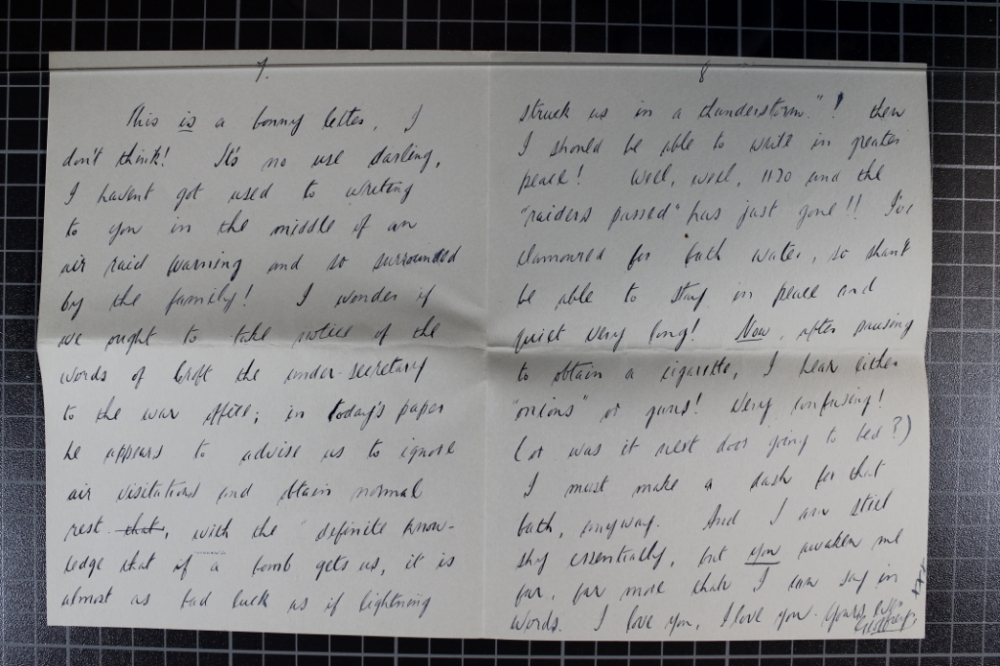 7.
This is a bonny letter, I
don't think! It's no use darling,
I havent got used to writing
to you in the middle of an
air raid warning and so surrounded
by the family! I wonder if
we ought to take notice of the
words of Croft the under-secretary
to the war office; in today's paper
he appears to advise us to ignore
air visitations and obtain normal
rest that, with the "definite know-
ledge that if a bomb gets us, it is
almost as bad luck as if lightning
8
struck us in a thunderstorm."! then
I should be able to write in greater
peace! Well, well, 1120 and the
"raiders passed" has just gone!! I've
clamoured for bath water, so shan't
be able to stay in peace and
quiet very long! Now, after pausing
to obtain a cigarette, I hear either
"onions" or guns! Very confusing!
(or was it next door going to bed?)
I must make a dash for that
bath, anyway. And I am still
shy essentially, but you awaken me
far, far more than I can say in
words. I love you, I love you. Yours
Geoffrey.
xxx